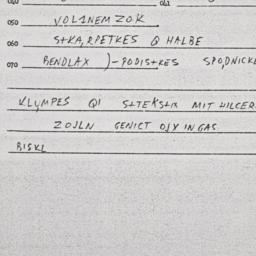 040 041
050 VOLINEMZOK
060 STKA,RPETKES Q HALBE
070 BENDLAX )-PODISTKES SPODNICKE
KLYMPES QI STEKSTIX MIT HILCER
ZOJLN GENICT OJY IN GAS
BISKL